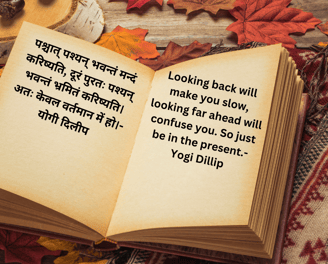 पश्चात् पश्यन् भवन्तं मन्दं
करिष्यति, दूरं पुरतः पश्यन्
भवन्तं भ्रमितं करिष्यति।
अतः केवल वर्तमान में हो।-
योगी दिलीप
Looking back will
make you slow,
looking far ahead will
confuse you. So just
be in the present.-
Yogi Dillip